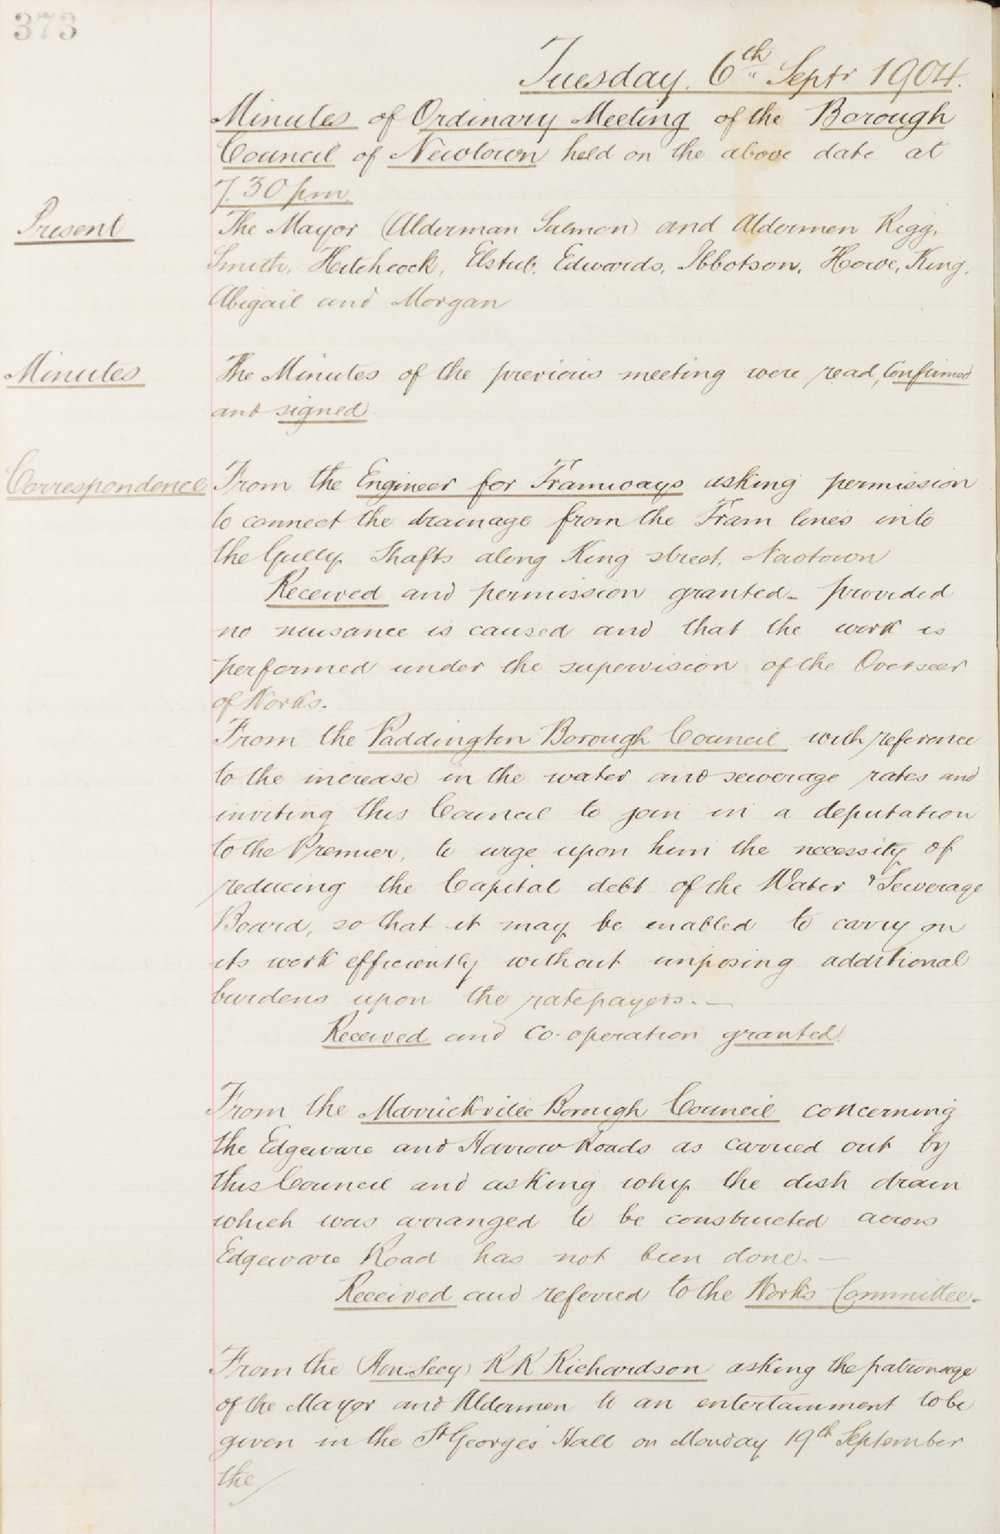 373
Tuesday, 6th Septr 1904.
Minutes of Ordinary Meeting of the Borough
Council of Newtown held on the above date at
7.30 pm
Present
The Mayor (Alderman Salmon) and Aldermen Rigg,
Smith, Hitchcock, Elstub, Edwards, Ibbotson, Howe, King,
Abigail and Morgan
Minutes
The Minutes of the previous meeting were read, Confirmed
and signed.
Correspondence
From the Engineer for Tramways asking permission
to connect the drainage from the Tram lines into
the Gully Shafts along King street, Newtown
Received and permission granted - provided
no nuisance is caused and that the work is
performed under the supervision of the Overseer
of Works.
From the Paddington Borough Council with reference
to the increase in the water and sewerage rates and
inviting this Council to join in a deputation
to the Premier, to urge upon him the necessity of
reducing the Capital debt of the Water & Sewerage
Board, so that it may be enabled to carry on
its work efficiently without imposing additional
burdens upon the ratepayers. —
Received and Co-operation granted.
From the Marrickville Borough Council concerning
the Edgeware and Harrow Roads as carried out by
this Council and asking why the dish drain
which was arranged to be constructed across
Edgeware Road has not been done. —
Received and referred to the Works Committee. -
From the (Hon Secy) R R Richardson asking the patronage
of the Mayor and Aldermen to an entertainment to be
given in the St Georges Hall on Monday 19th September
the/